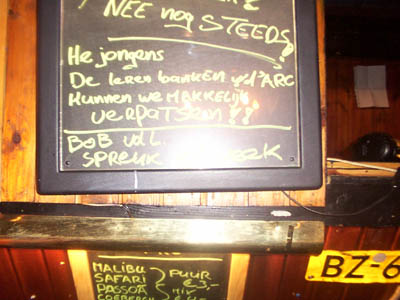 NEE nog STEEDS
He jongens
De leren banken v/d ARC
Kunnen we MAKKELIJK
VERPATSEN!!
BOB v.d L.
SPREUK EK
MALIBU
SAFARI
PASSOA
PUUR
€3,-
MIX
BZ-6